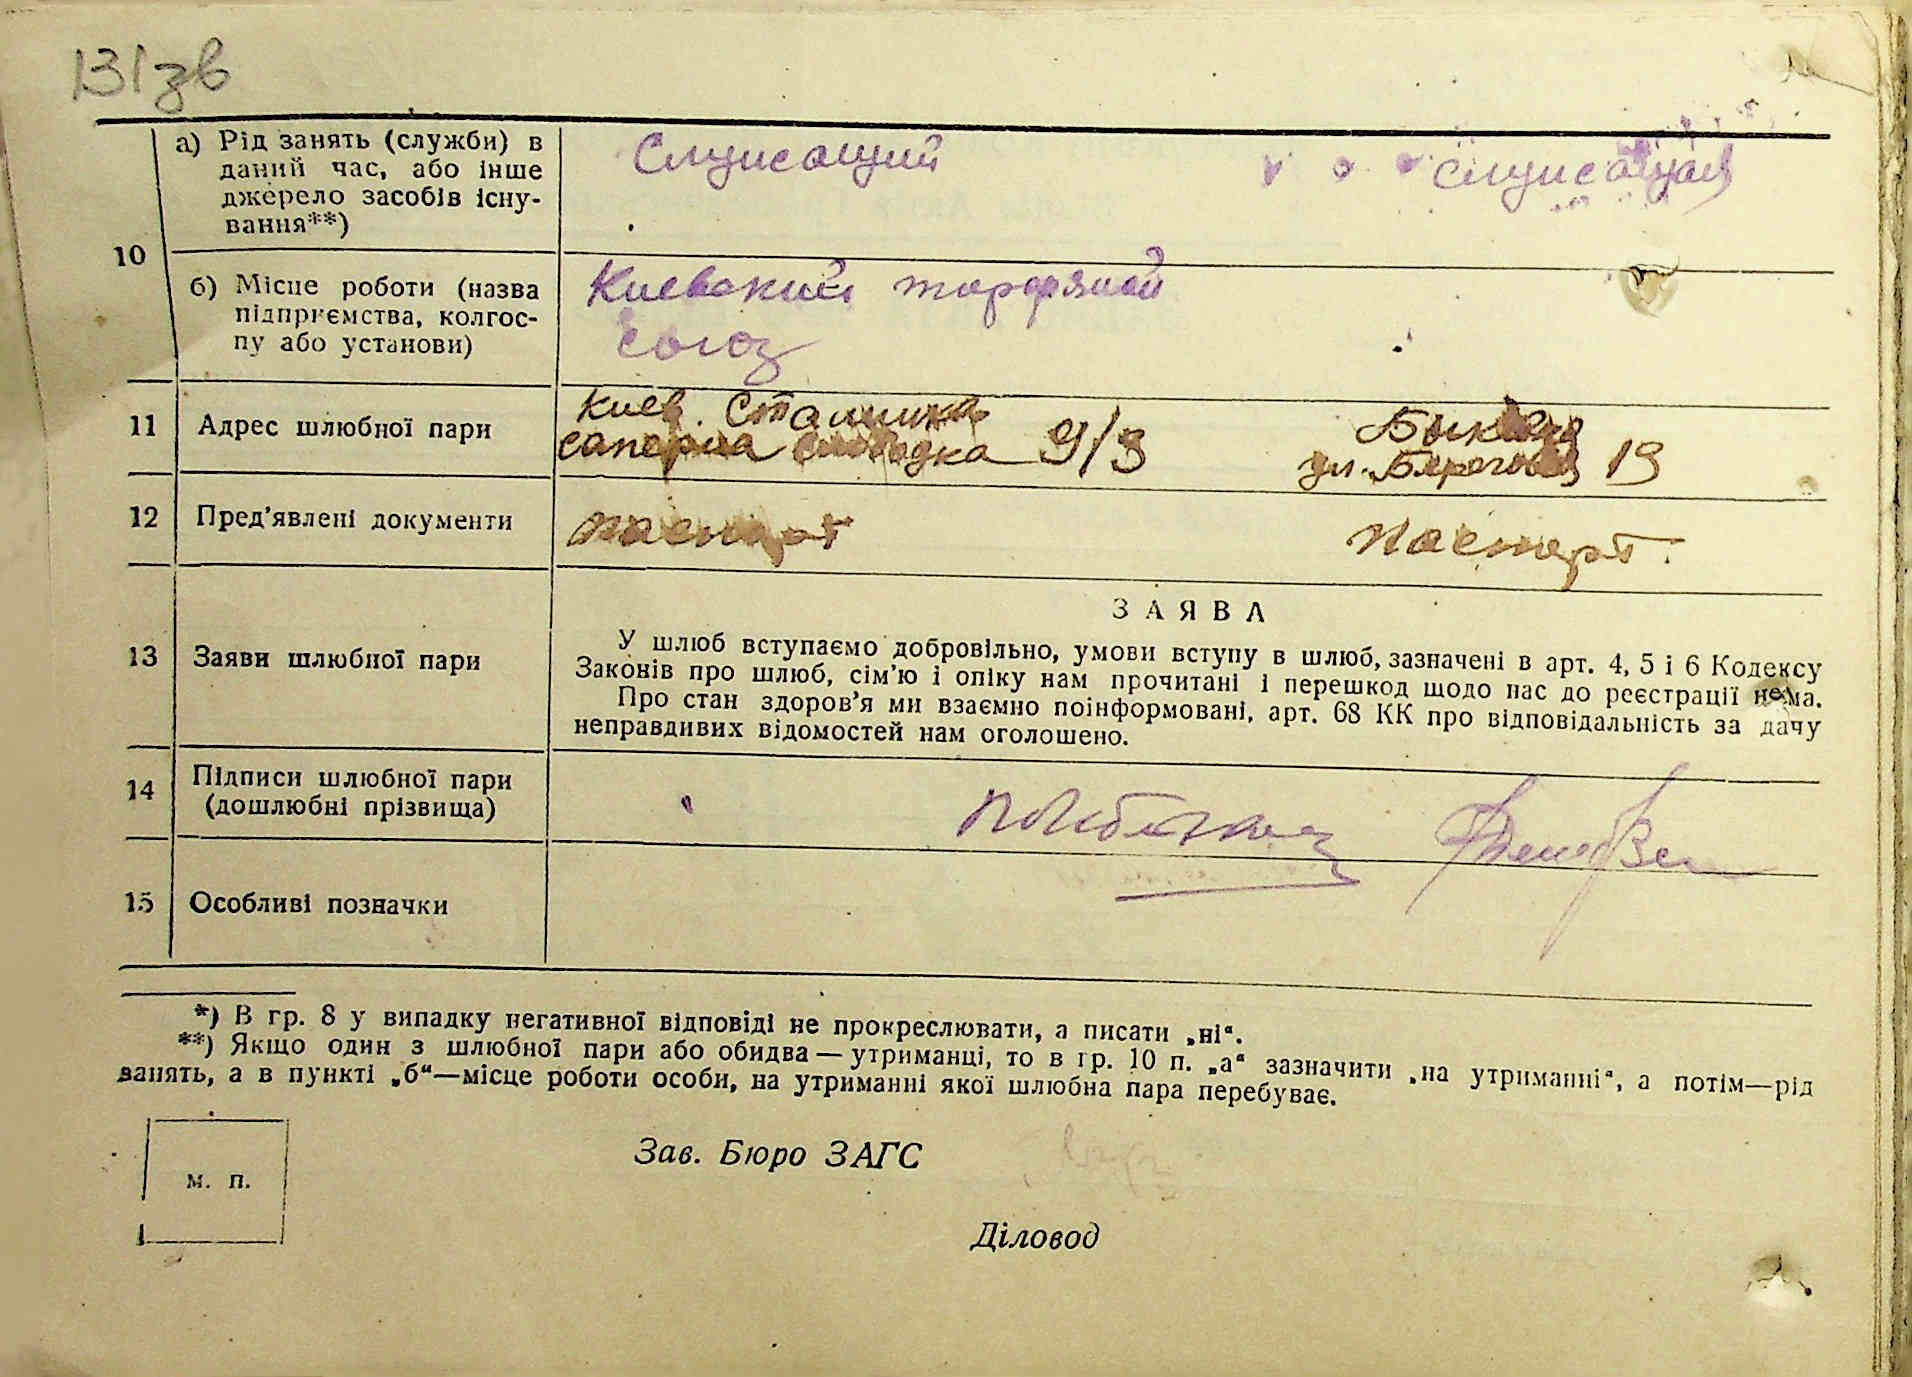 131зв
а) Рід занять (служби) в
даний час, або інше
джерело засобів існу-
вання**)
Служащий
Служащая
10
б) Місце роботи (назва
підприємства, колгос-
пу або установи)
Киевский торфяной
союз
11
Адрес шлюбної пари
Киев. Сталинка
саперна слободка 9/3
ул. Береговая 19
12
Пред'явлені документи
паспорт
паспорт.
13
Заяви шлюбної пари
ЗАЯВА
У шлюб вступаємо добровільно, умови вступу в шлюб, зазначені в арт. 4, 5 і 6 Кодексу
Законів про шлюб, сім'ю і опіку нам прочитані і перешкод щодо нас до реєстрації нема.
Про стан здоров'я ми взаємно поінформовані, арт. 68 КК про відповідальність за дачу
неправдивих відомостей нам оголошено.
14
Підписи шлюбної пари
(дошлюбні прізвища)
15
Особливі позначки
*) В гр. 8 у випадку негативної відповіді не прокреслювати, а писати „ні“.
**) Якщо один з шлюбної пари або обидва — утриманці, то в гр. 10 п. „а“ зазначити „на утриманні“, а потім—рід
занять, а в пункті „б“—місце роботи особи, на утриманні якої шлюбна пара перебуває.
м. п.
Зав. Бюро ЗАГС
Діловод